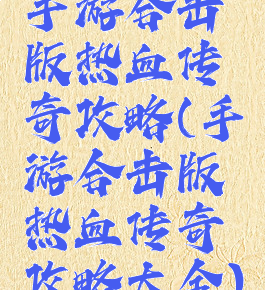 手游合击
版热血传
奇攻略(手
游合击版
热血传奇
攻略大全)